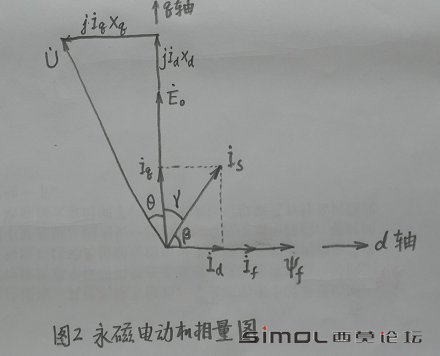 q轴
jİqXq
U̇
jİdXd
Ė₀
İq
İs
θ
γ
β
İd
İf
ψf
d轴
图2 永磁电动机相量图
simol西莫论坛